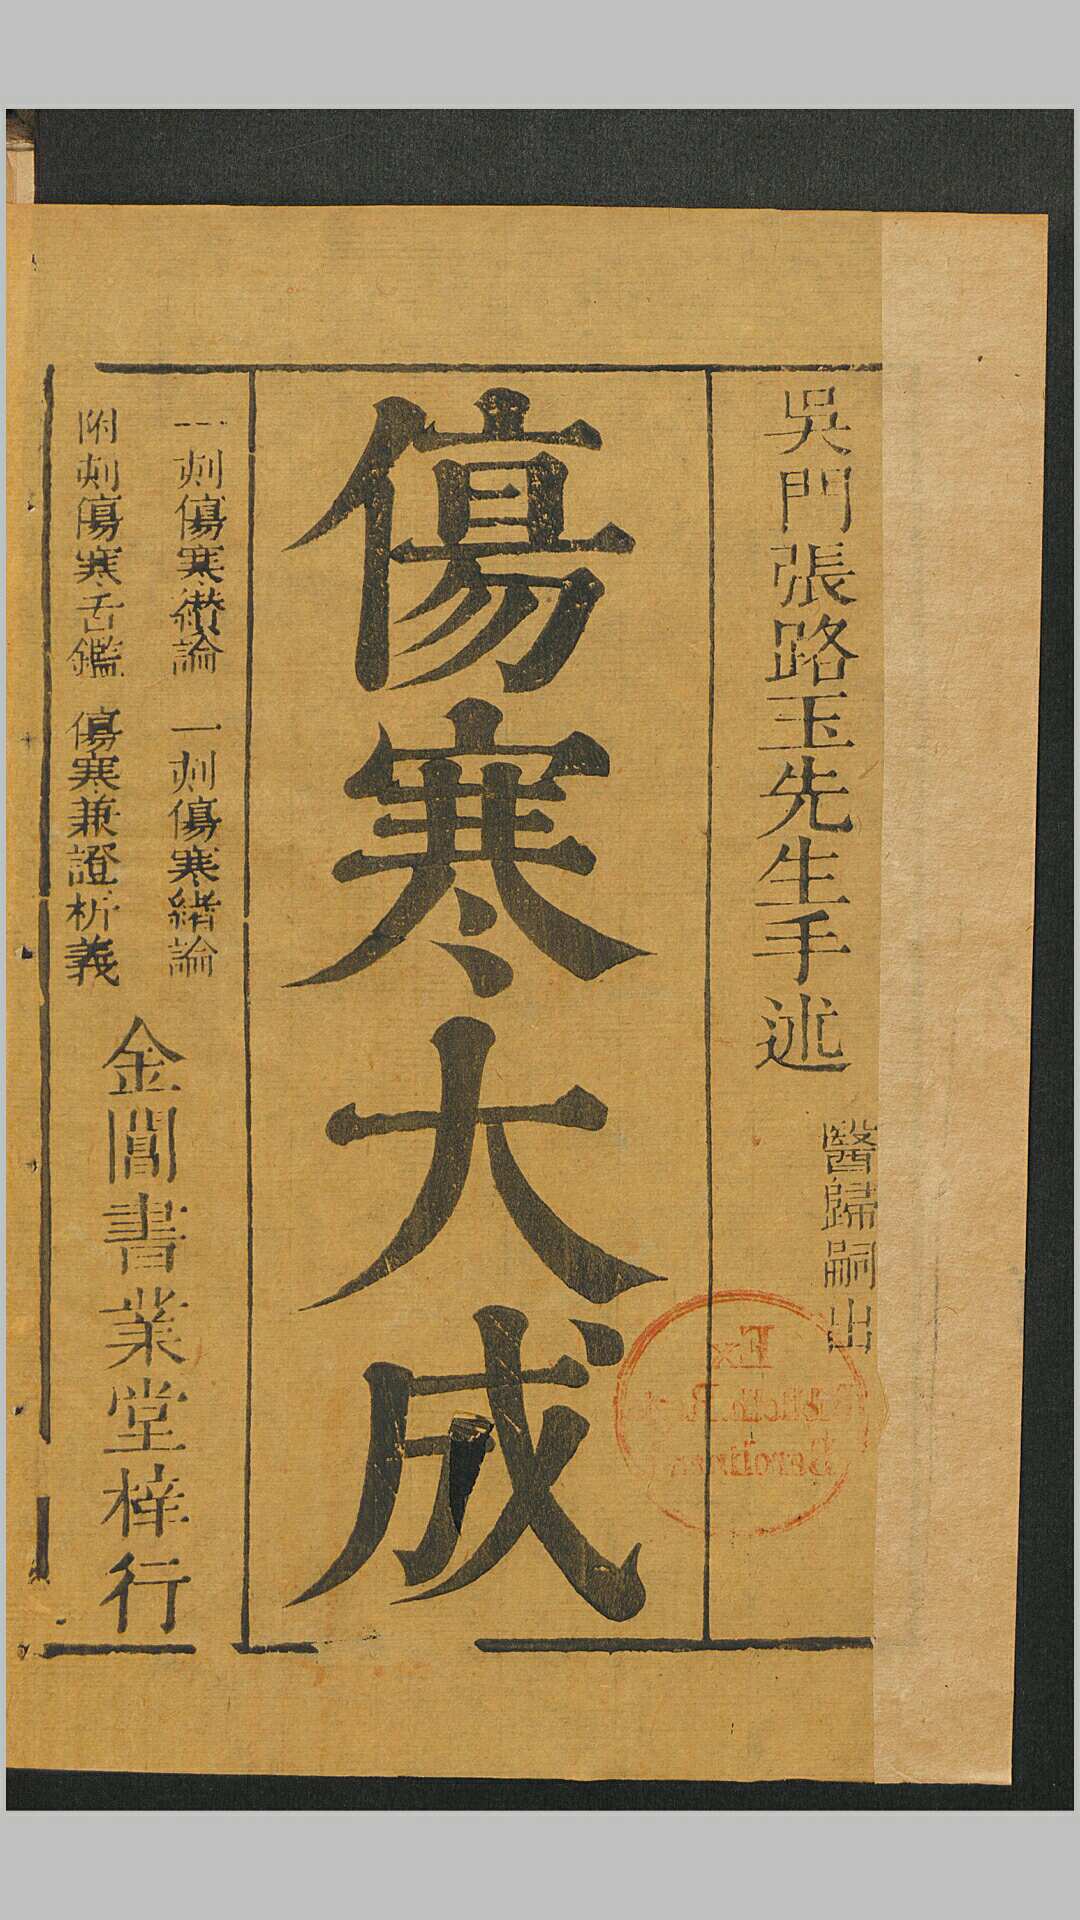 醫歸嗣出
吳門張路玉先生手述
傷寒大成
一刻傷寒纘論 一刻傷寒緒論
附刻傷寒舌鑑 傷寒兼證析義
金閶書業堂梓行
Ex